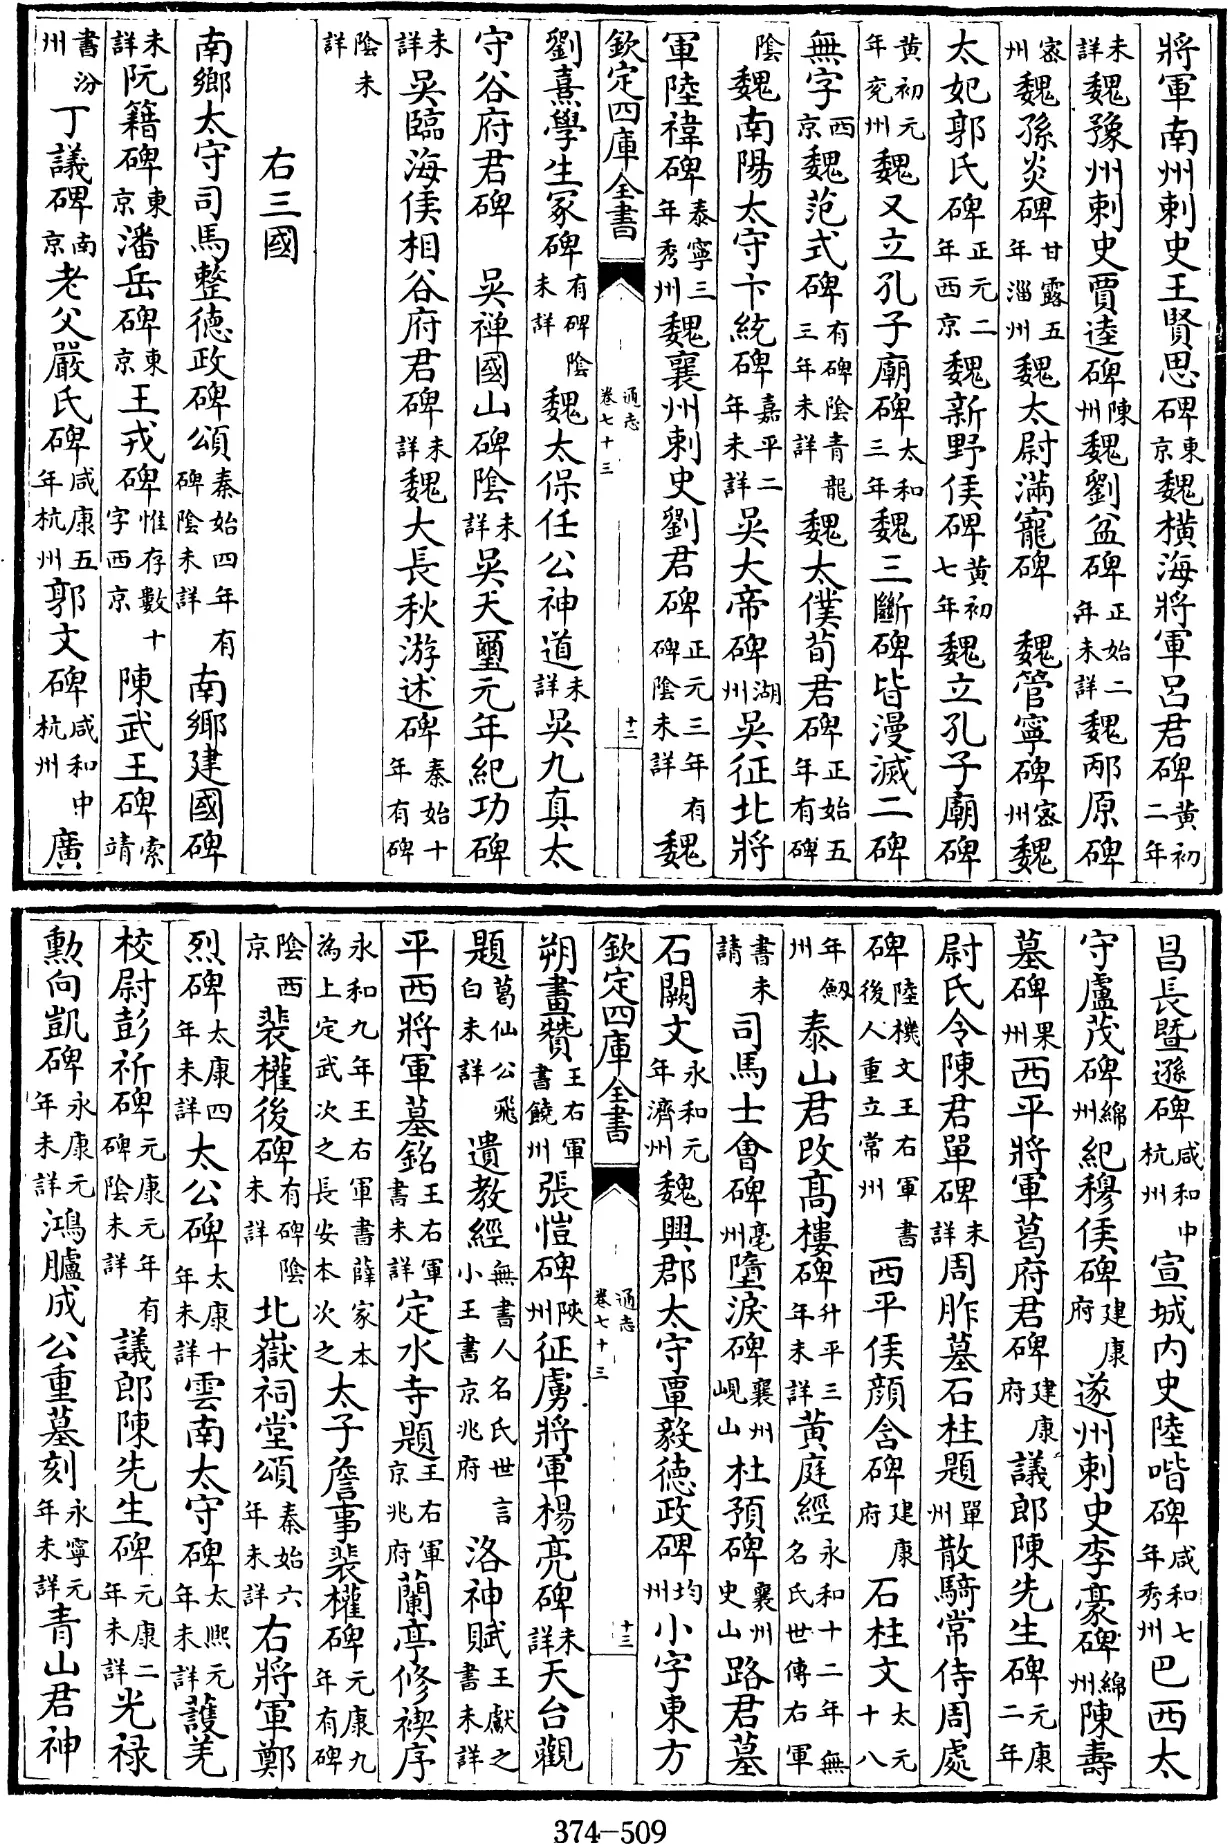 將軍南州刺史王賢思碑東京魏橫海將軍呂君碑黄初二年
未詳魏豫州刺史賈逵碑陳州魏劉盆碑正始二年未詳魏邴原碑
宻州魏孫炎碑甘露五年淄州魏太尉滿寵碑 魏管寧碑宻州魏
太妃郭氏碑正元二年西京魏新野侯碑黄初七年魏立孔子廟碑
黄初元年兖州魏又立孔子廟碑太和三年魏三斷碑皆漫滅二碑
無字西京魏范式碑有碑陰青龍三年未詳魏太僕荀君碑正始五年有碑
陰魏南陽太守卞統碑嘉平二年未詳吳大帝碑湖州吳征北將
軍陸禕碑泰寧三年秀州魏襄州刺史劉君碑正元三年有碑陰未詳魏
欽定四庫全書 通志卷七十三 十二
劉熹學生冢碑有碑陰未詳魏太保任公神道未詳吳九真太
守谷府君碑 吳禅國山碑陰未詳吳天璽元年紀功碑
未詳吳臨海侯相谷府君碑未詳魏大長秋游述碑泰始十年有碑
陰未詳
右三國
南鄉太守司馬整德政碑頌泰始四年有碑陰未詳南鄉建國碑
未詳阮籍碑東京潘岳碑東京王戎碑惟存數十字西京陳武王碑索靖
書汾州丁議碑南京老父嚴氏碑咸康五年杭州郭文碑咸和中杭州廣
昌長暨遜碑咸和中杭州宣城内史陸喈碑咸和七年秀州巴西太
守盧茂碑綿州紀穆侯碑建康府遂州刺史李豪碑綿州陳壽
墓碑果州西平將軍葛府君碑建康府議郎陳先生碑元康二年
尉氏令陳君單碑未詳周胙墓石柱題單州散騎常侍周處
碑陸機文王右軍書後人重立常州西平侯顏含碑建康府石柱文太元十八
年劔州泰山君改髙樓碑升平三年未詳黄庭經永和十二年無名氏世傳右軍
書未請司馬士會碑亳州墮淚碑襄州峴山杜預碑襄州史山路君墓
石闕文永和元年濟州魏興郡太守覃毅德政碑均州小字東方
欽定四庫全書 通志卷七十三 十三
朔畫贊王右軍書饒州張愷碑陜州征虜將軍楊亮碑未詳天台觀
題葛仙公飛白未詳遺教經無書人名氏世言小王書京兆府洛神賦王獻之書未詳
平西將軍墓銘王右軍書未詳定水寺題王右軍京兆府蘭亭修禊序
永和九年王右軍書薛家本為上定武次之長安本次之太子詹事裴權碑元康九年有碑
陰西京裴權後碑有碑陰未詳北嶽祠堂頌泰始六年未詳右將軍鄭
烈碑太康四年未詳太公碑太康十年未詳雲南太守碑太熙元年未詳護羌
校尉彭祈碑元康元年有碑陰未詳議郎陳先生碑元康二年未詳光禄
勲向凱碑永康元年未詳鴻臚成公重墓刻永寧元年未詳青山君神
374-509